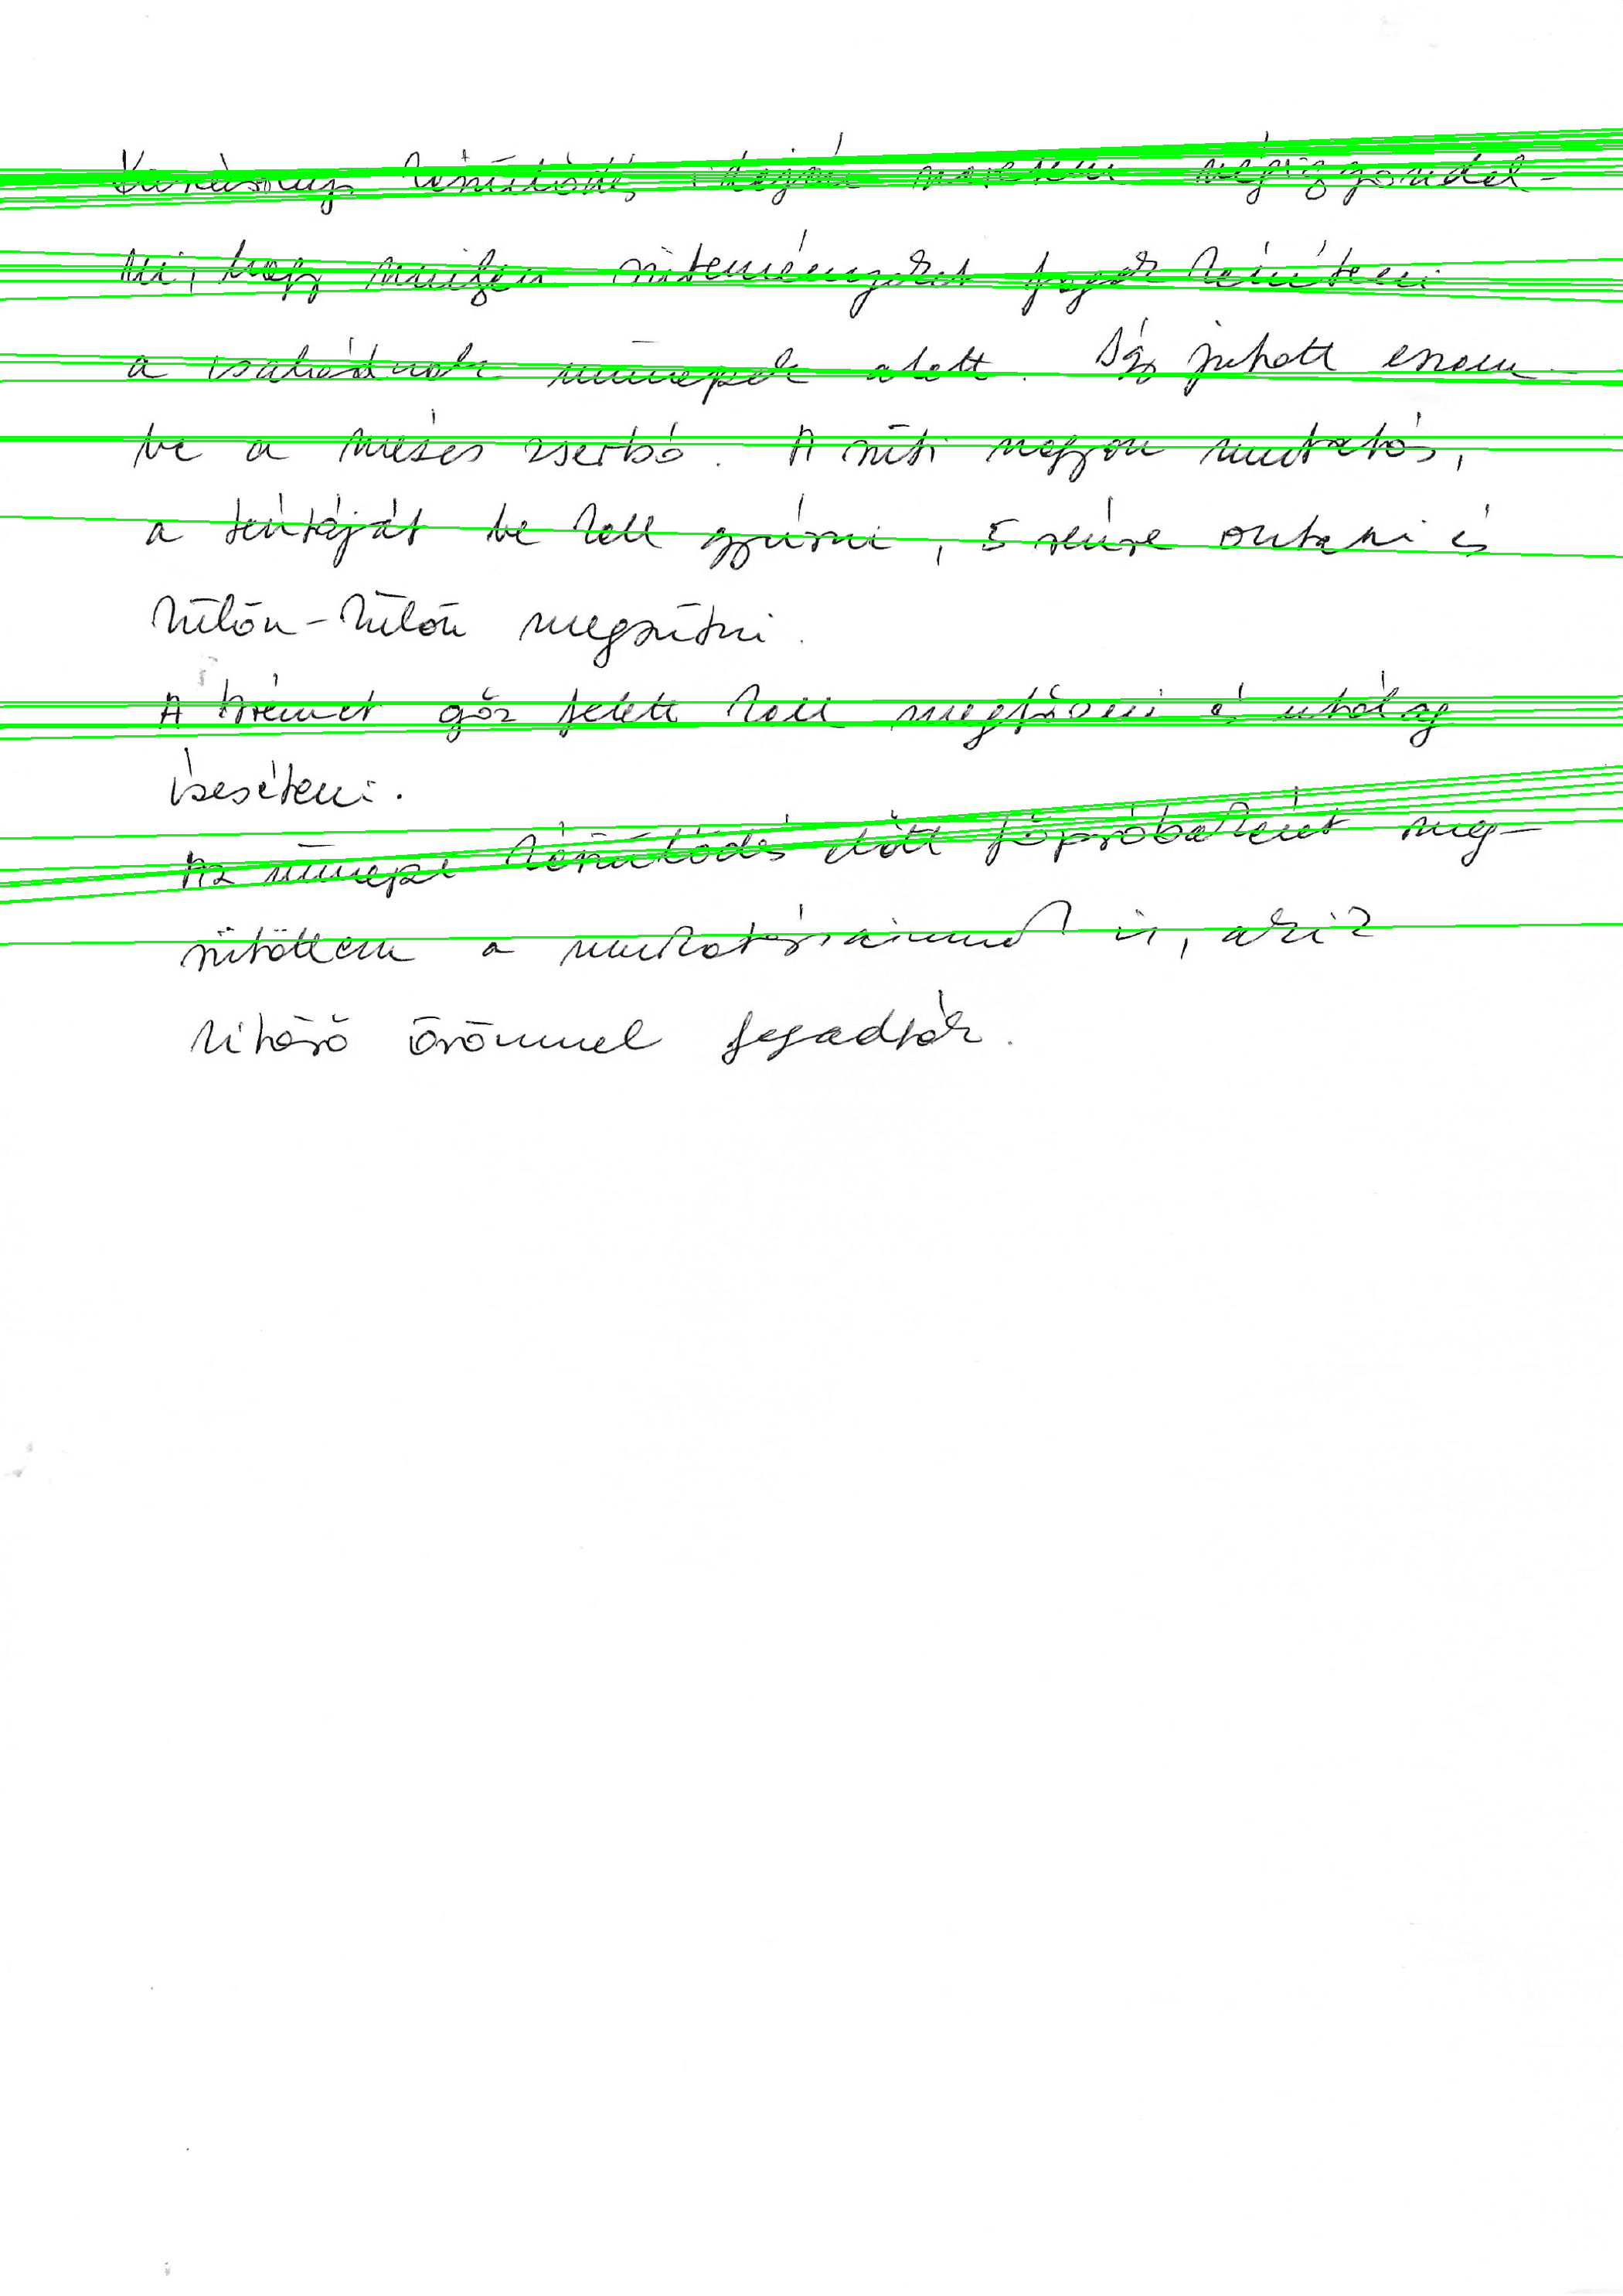 Karácsonyi készülődés idején szoktam végiggondol-
ni, hogy milyen süteményeket fogok készíteni
a családnak ünnepek alatt. Így jutott eszem-
be a mézes zserbó. A süti nagyon mutatós,
a tésztáját be kell gyúrni, 5 részre osztani és
külön-külön megsütni.
A krémet gőz felett kell megfőzni és utólag
ízesíteni.
Az ünnepi készülődés előtt főpróbaként meg-
sütöttem a munkatársaimnak is, akik
kitörő örömmel fogadták.